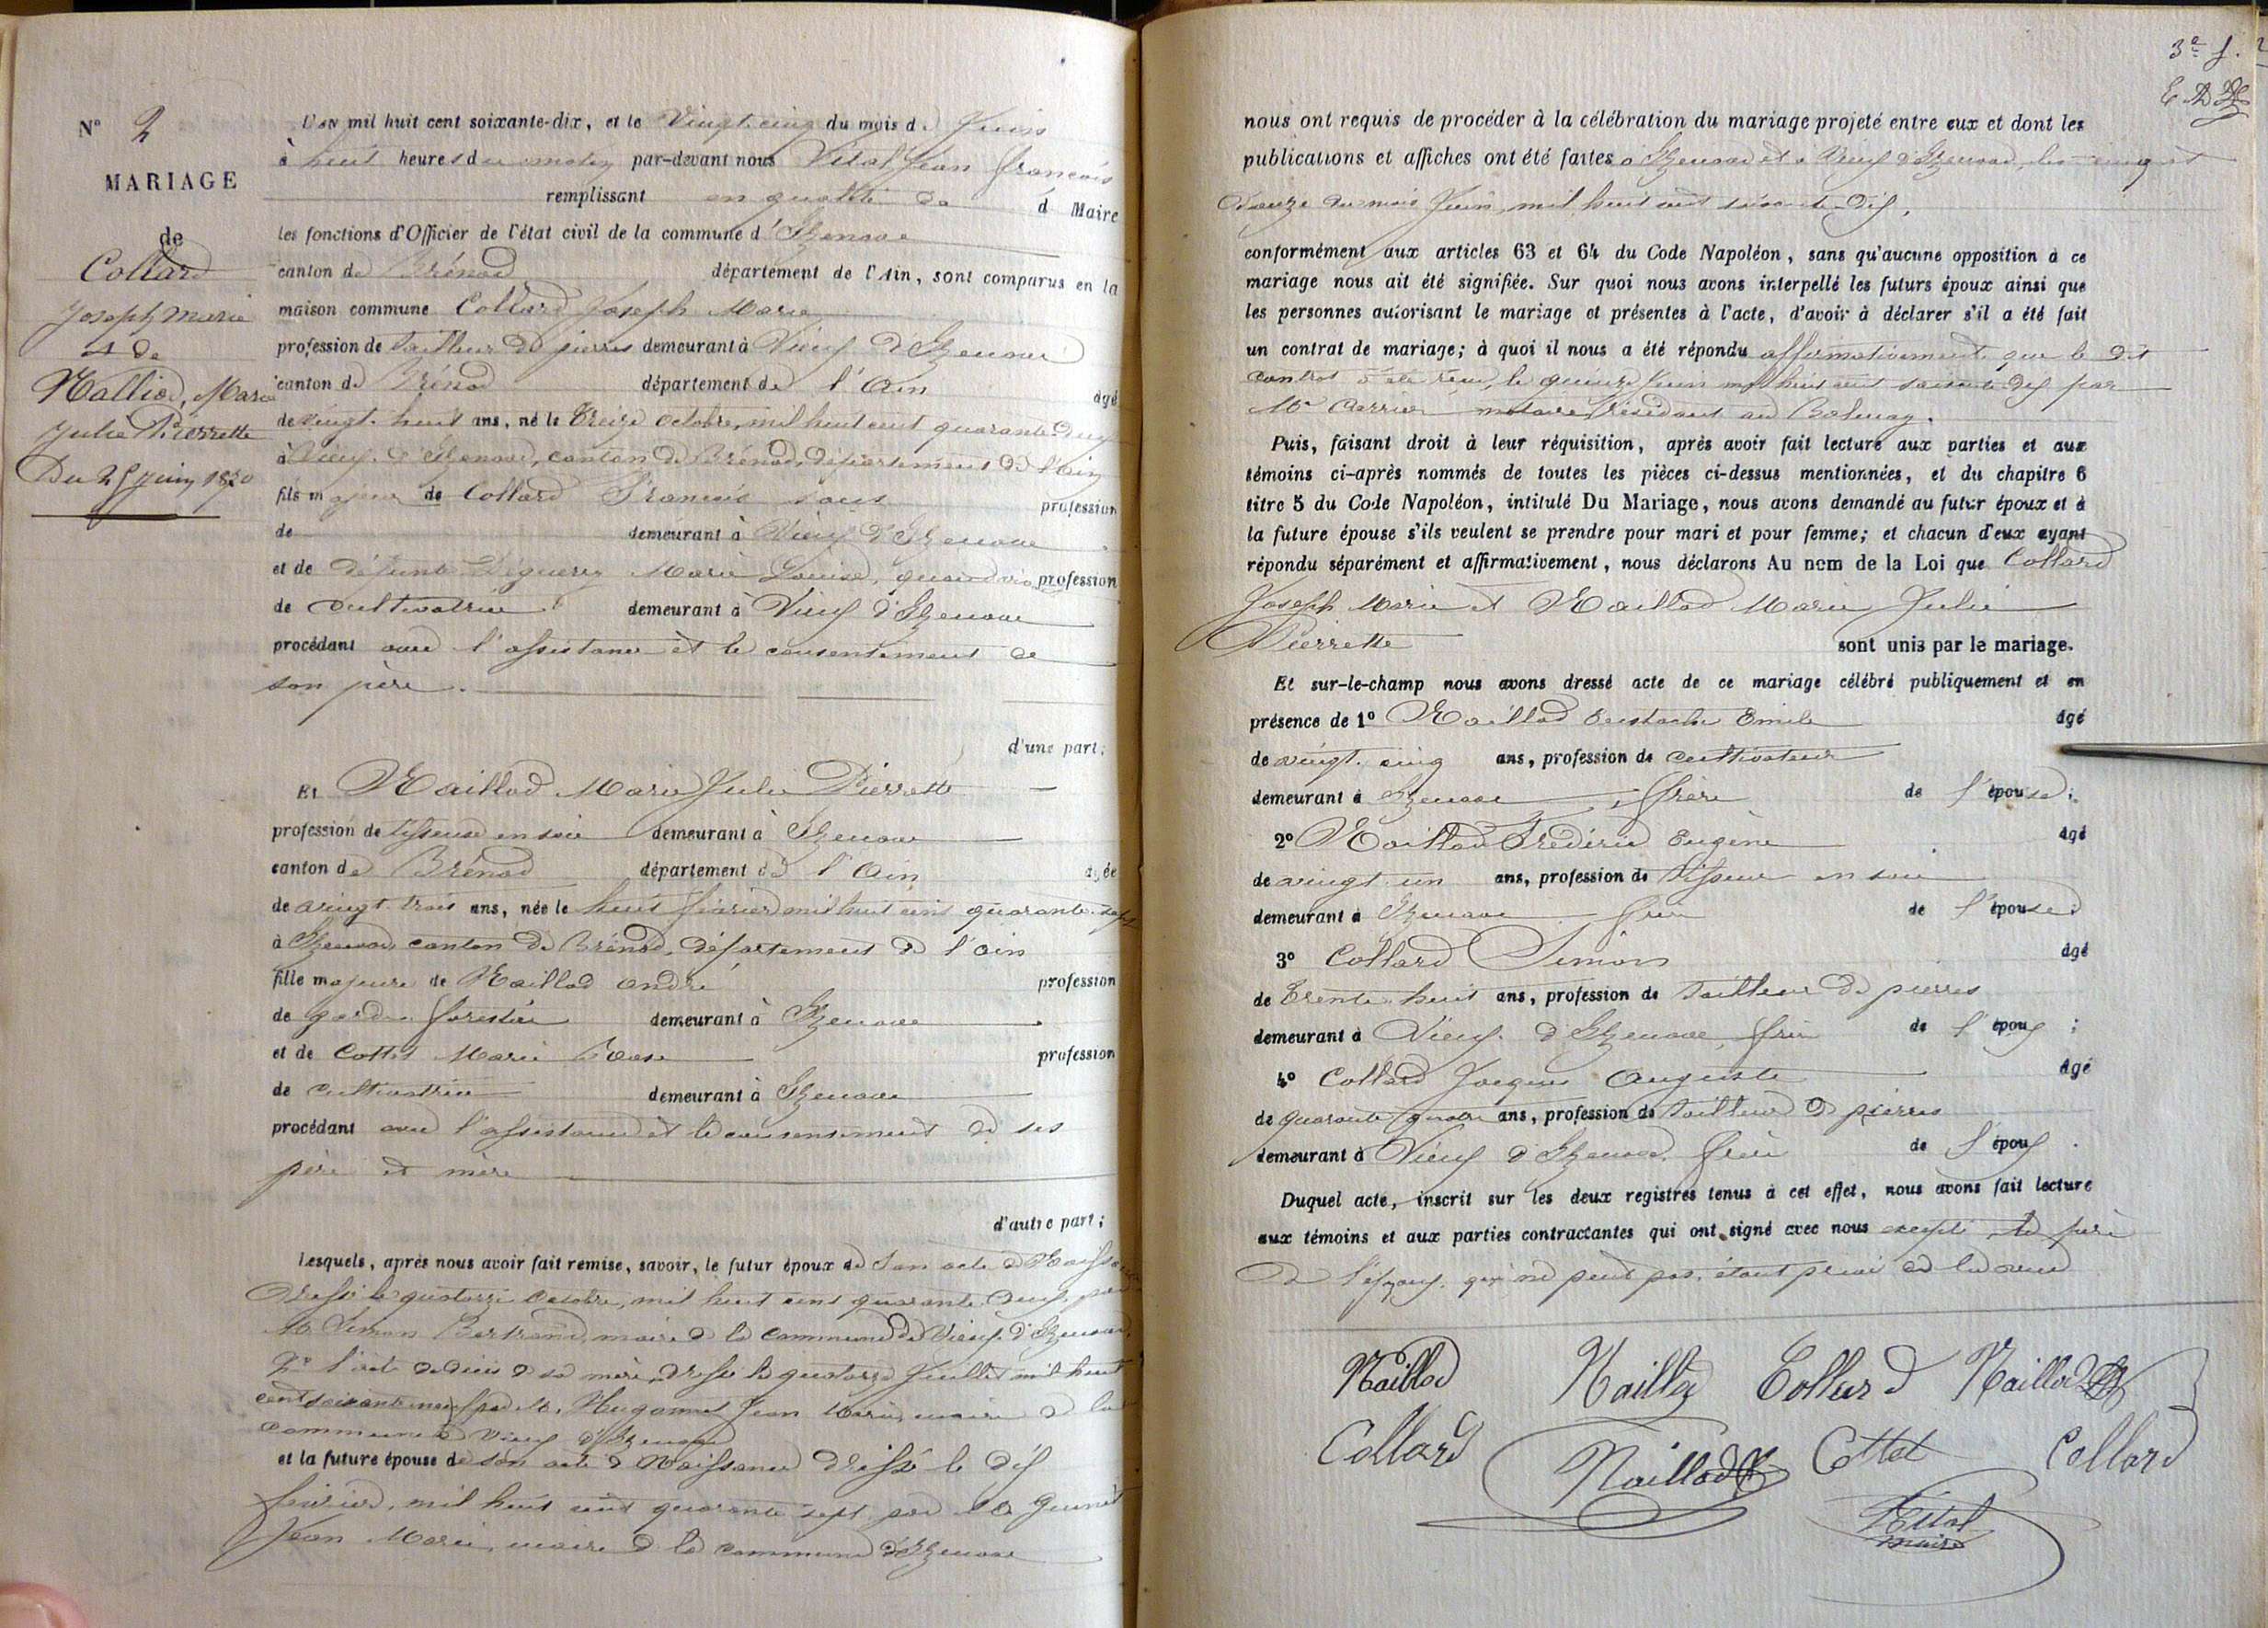 N° 2
MARIAGE
de
Collard
Joseph Marie
et de
Maillod, Marie
Julie Pierrette
Du 25 juin 1870
L'an mil huit cent soixante-dix, et le Vingt cinq du mois de Juin
à huit heures du matin par-devant nous Vital Jean François
remplissant en qualité de d Maire
les fonctions d'Officier de l'état civil de la commune d'Izenave
canton de Brénod département de l'Ain, sont comparus en la
maison commune Collard Joseph Marie
profession de tailleur de pierres demeurant à Vieux d'Izenave
canton de Brénod département de l'Ain âgé
de vingt huit ans, né le treize octobre, mil huit cent quarante deux
à Vieux d'Izenave, canton de Brénod, département de l'Ain
fils majeur de Collard François sans profession
de demeurant à Vieux d'Izenave
et de défunte Marie Louise, quand vivait profession
de cultivatrice demeurant à Vieux d'Izenave
procédant avec l'assistance et le consentement de
son père.
d'une part;
Et Maillod Marie Julie Pierrette
profession de tisseuse en soie demeurant à Izenave
canton de Brénod département de l'Ain âgée
de vingt trois ans, née le huit février mil huit cent quarante sept
à Izenave, canton de Brénod, département de l'Ain
fille majeure de Maillod André profession
de garde forestier demeurant à Izenave
et de Cottet Marie Rose profession
de cultivatrice demeurant à Izenave
procédant avec l'assistance et le consentement de ses
père et mère
d'autre part;
Lesquels, après nous avoir fait remise, savoir, le futur époux de son acte de Naissance
dressé le quatorze octobre, mil huit cent quarante deux, par
Mr Simon Bertrand, maire de la commune de Vieux d'Izenave,
2° l'acte de décès de sa mère dressé le quatorze Juillet mil huit
cent soixante neuf par Mr. Hugonnet Jean Marie, maire de la
commune de Vieux d'Izenave
et la future épouse de son acte de Naissance dressé le dix
février, mil huit cent quarante sept par Mr
Jean Marie, maire de la commune d'Izenave
3e f.
nous ont requis de procéder à la célébration du mariage projeté entre eux et dont les
publications et affiches ont été faites à Izenave et à Vieux d'Izenave, les cinq et
douze du mois Juin, mil huit cent soixante dix,
conformément aux articles 63 et 64 du Code Napoléon, sans qu'aucune opposition à ce
mariage nous ait été signifiée. Sur quoi nous avons interpellé les futurs époux ainsi que
les personnes autorisant le mariage et présentes à l'acte, d'avoir à déclarer s'il a été fait
un contrat de mariage; à quoi il nous a été répondu affirmativement que le dit
contrat a été reçu, le quinze Juin mil huit cent soixante dix par
Mr Carrier notaire résidant au Balmay.
Puis, faisant droit à leur réquisition, après avoir fait lecture aux parties et aux
témoins ci-après nommés de toutes les pièces ci-dessus mentionnées, et du chapitre 6
titre 5 du Code Napoléon, intitulé Du Mariage, nous avons demandé au futur époux et à
la future épouse s'ils veulent se prendre pour mari et pour femme; et chacun d'eux ayant
répondu séparément et affirmativement, nous déclarons Au nom de la Loi que Collard
Joseph Marie et Maillod Marie Julie
Pierrette sont unis par le mariage.
Et sur-le-champ nous avons dressé acte de ce mariage célébré publiquement et en
présence de 1° Maillod Eustache Emile âgé
de vingt cinq ans, profession de cultivateur
demeurant à Izenave, frère de l'épouse;
2° Maillod Frédéric Eugène âgé
de vingt un ans, profession de tisseur en soie
demeurant à Izenave frère de l'épouse
3° Collard Simon âgé
de trente huit ans, profession de tailleur de pierres
demeurant à Vieux d'Izenave, frère de l'époux;
4° Collard Jacques Auguste âgé
de quarante quatre ans, profession de tailleur de pierres
demeurant à Vieux d'Izenave, frère de l'époux.
Duquel acte, inscrit sur les deux registres tenus à cet effet, nous avons fait lecture
aux témoins et aux parties contractantes qui ont signé avec nous excepté le père
de l'époux qui ne peut pas, étant privé de la vue
Maillod Maillod Collard Maillod
Collard Maillod Cottet Collard
Vital
maire